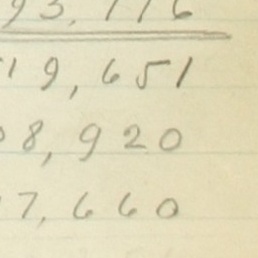 93,116
19,651
08,920
7,660